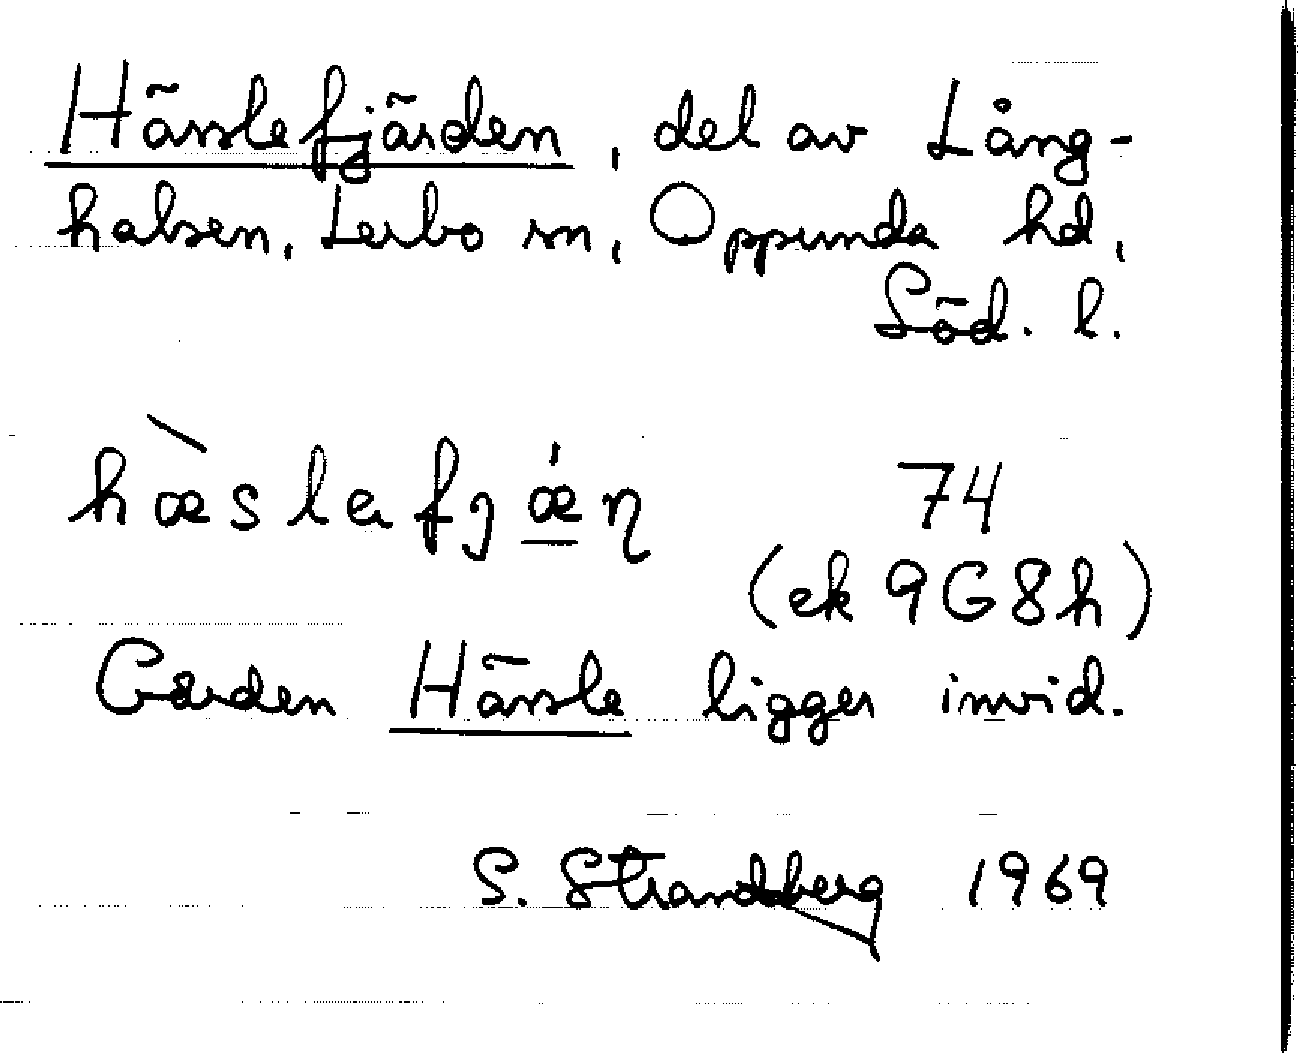 Hässlefjärden, del av Lång-
halsen, Lerbo sn, Oppunda hd,
Söd. l.
hæ̀slafjǽn 74
(ek 9G8h)
Gården Hässle ligger invid.
S. Strandberg 1969